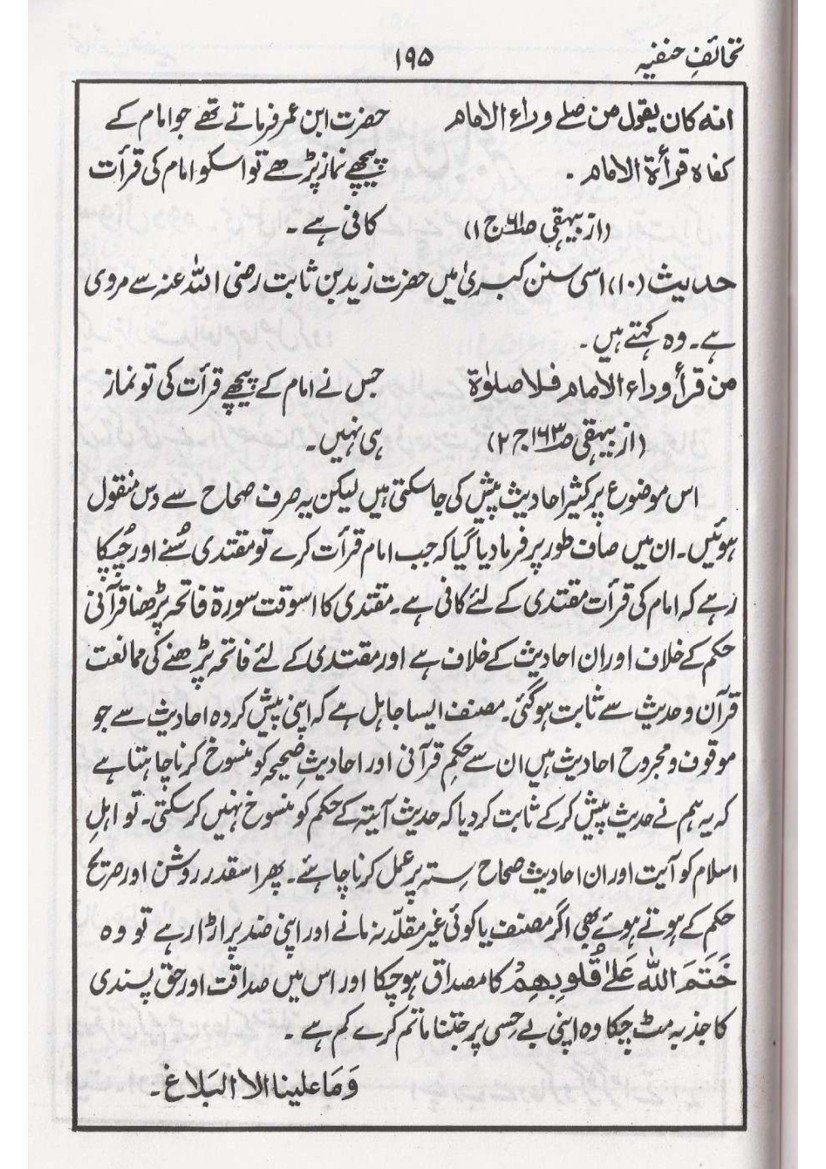 تحائفِ حنفیہ
۱۹۵
انه كان يقول من صلے وراء الامام
حضرت ابن عمر فرماتے تھے جو امام کے
كفاه قرأة الامام ۔
پیچھے نماز پڑھے تو اسکو امام کی قرأت
(از بیہقی صا۶۱ ج ا)
کافی ہے ۔
حدیث (۱۰) اسی سنن کبریٰ میں حضرت زید بن ثابت رضی اللہ عنہ سے مروی
ہے ۔ وہ کہتے ہیں ۔
من قرأ وراء الامام فلا صلوٰة
جس نے امام کے پیچھے قرأت کی تو نماز
(از بیہقی صـ ۱۶۳ ج ۲)
ہی نہیں ۔
اس موضوع پر کثیر احادیث پیش کی جا سکتی ہیں لیکن یہ صرف صحاح سے دس منقول
ہوئیں ۔ ان میں صاف طور پر فرما دیا گیا کہ جب امام قرأت کرے تو مقتدی سُنے اور چُپکا
رہے کہ امام کی قرأت مقتدی کے لئے کافی ہے ۔ مقتدی کا اسوقت سورۃ فاتحہ پڑھنا قرآنی
حکم کے خلاف اور ان احادیث کے خلاف ہے اور مقتدی کے لئے فاتحہ پڑھنے کی ممانعت
قرآن و حدیث سے ثابت ہو گئی ۔ مصنف ایسا جاہل ہے کہ اپنی پیش کردہ احادیث سے جو
موقوف و مجروح احادیث ہیں ان سے حکمِ قرآنی اور احادیثِ صحیحہ کو منسوخ کرنا چاہتا ہے
کہ یہ ہم نے حدیث پیش کر کے ثابت کر دیا کہ حدیث آیتہ کے حکم کو منسوخ نہیں کر سکتی ۔ تو اہلِ
اسلام کو آیت اور ان احادیث صحاح ستہ پر عمل کرنا چاہئے ۔ پھر اسقدر روشن اور صریح
حکم کے ہوتے ہوئے بھی اگر مصنف یا کوئی غیر مقلّد نہ مانے اور اپنی ضد پر اڑا رہے تو وہ
خَتَمَ اللّٰہُ عَلٰے قُلُوبِهِمْ کا مصداق ہو چکا اور اس میں صداقت اور حق پسندی
کا جذبہ مٹ چکا وہ اپنی بے حِسی پر جتنا ماتم کرے کم ہے ۔
وَمَا علینا الا البَلاغ ۔